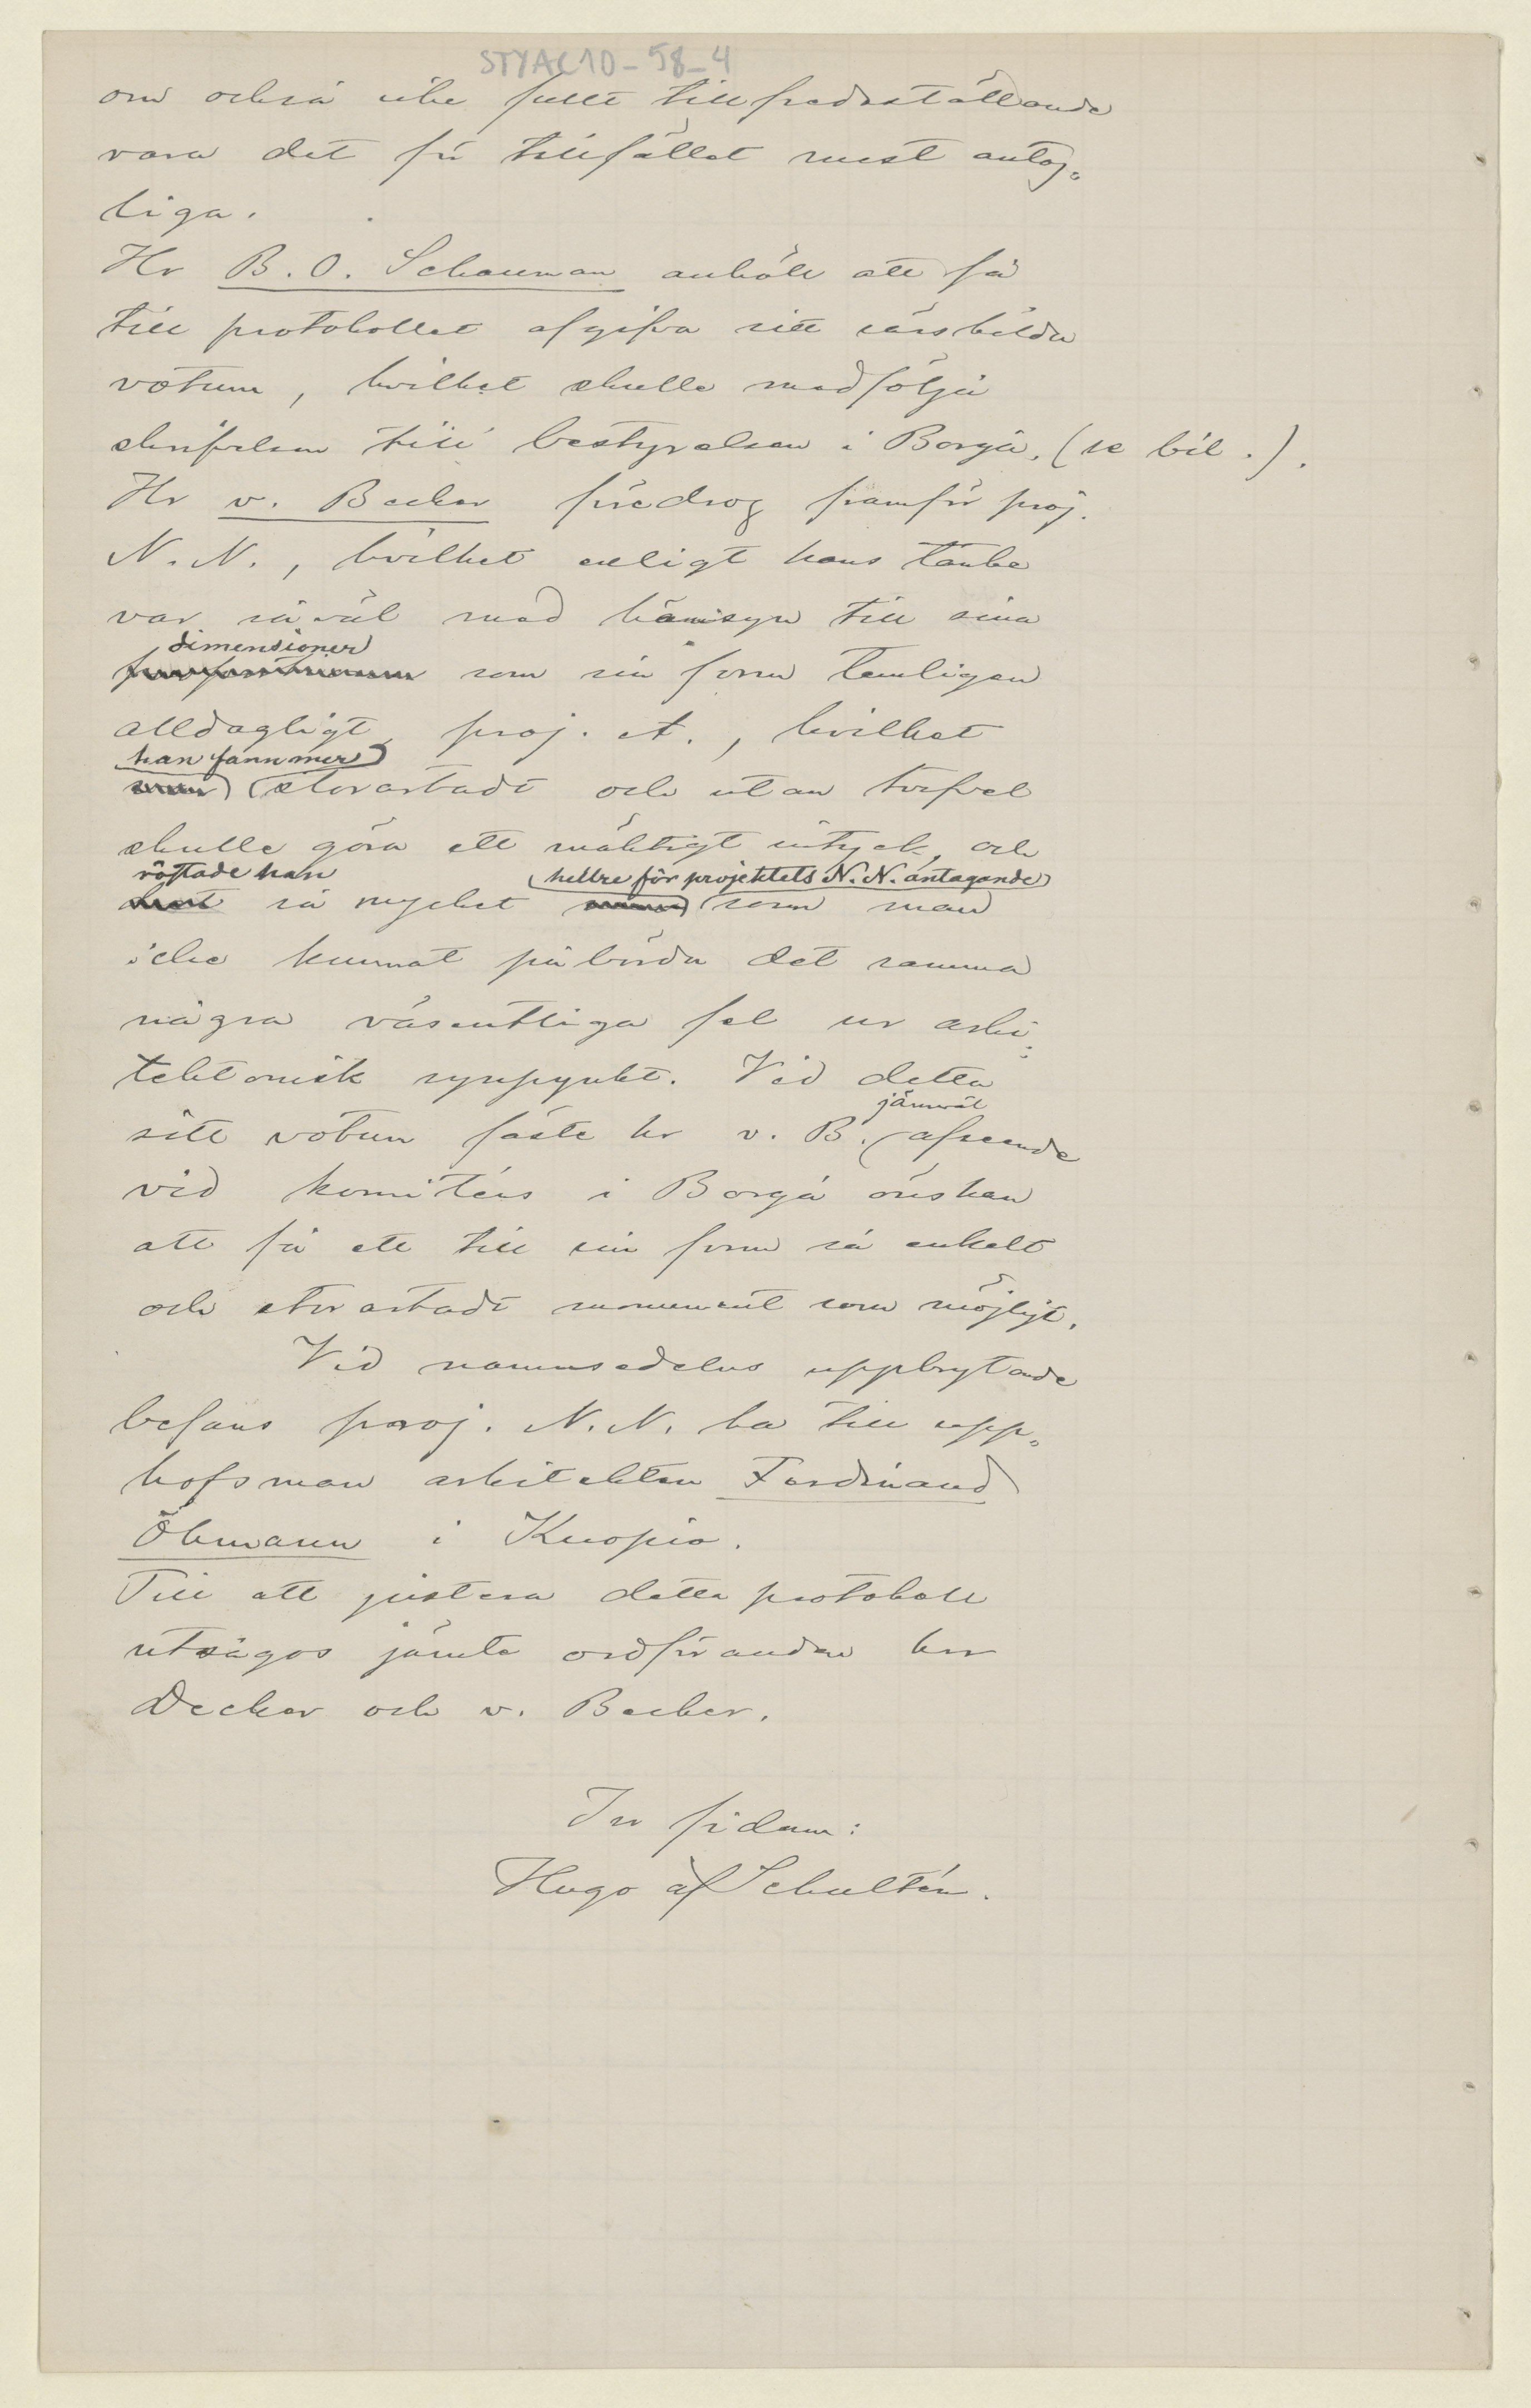 STYAC10-58-4
om också icke fullt tillfredsställande
vara det för tillfället mest antag-
liga.
Hr B. O. Schauman anhöll att få
till protokollet afgifva sitt särskilda
votum, hvilket skulle medfölja
skrifvelsen till bestyrelsen i Borgå. (se bil.).
Hr v. Becker föredrog framför proj.
N. N., hvilket enligt hans tanke
var såväl med hänsyn till sina
dimensioner
som sin form temligen
alldagligt, proj. A., hvilket
han fann mer
storartadt och utan tvifvel
skulle göra ett mäktigt intryck och
röstade han hellre för projektets N. N. antagande
så mycket som man
icke kunnat påbörda det samma
några väsentliga fel ur arki-
tektonisk synpunkt. Vid detta
jämväl
sitt votum fäste hr v. B. afseende
vid komiténs i Borgå önskan
att få ett till sin form så enkelt
och storartadt monument som möjligt.
Vid namnsedelns uppbrytande
befans proj. N. N. ha till upp-
hofsman arkitekten Ferdinand
Öhmann i Kuopio.
Till att justera detta protokoll
utsågos jämte ordföranden hrr
Decker och v. Becker.
In fidem:
Hugo af Schultén.